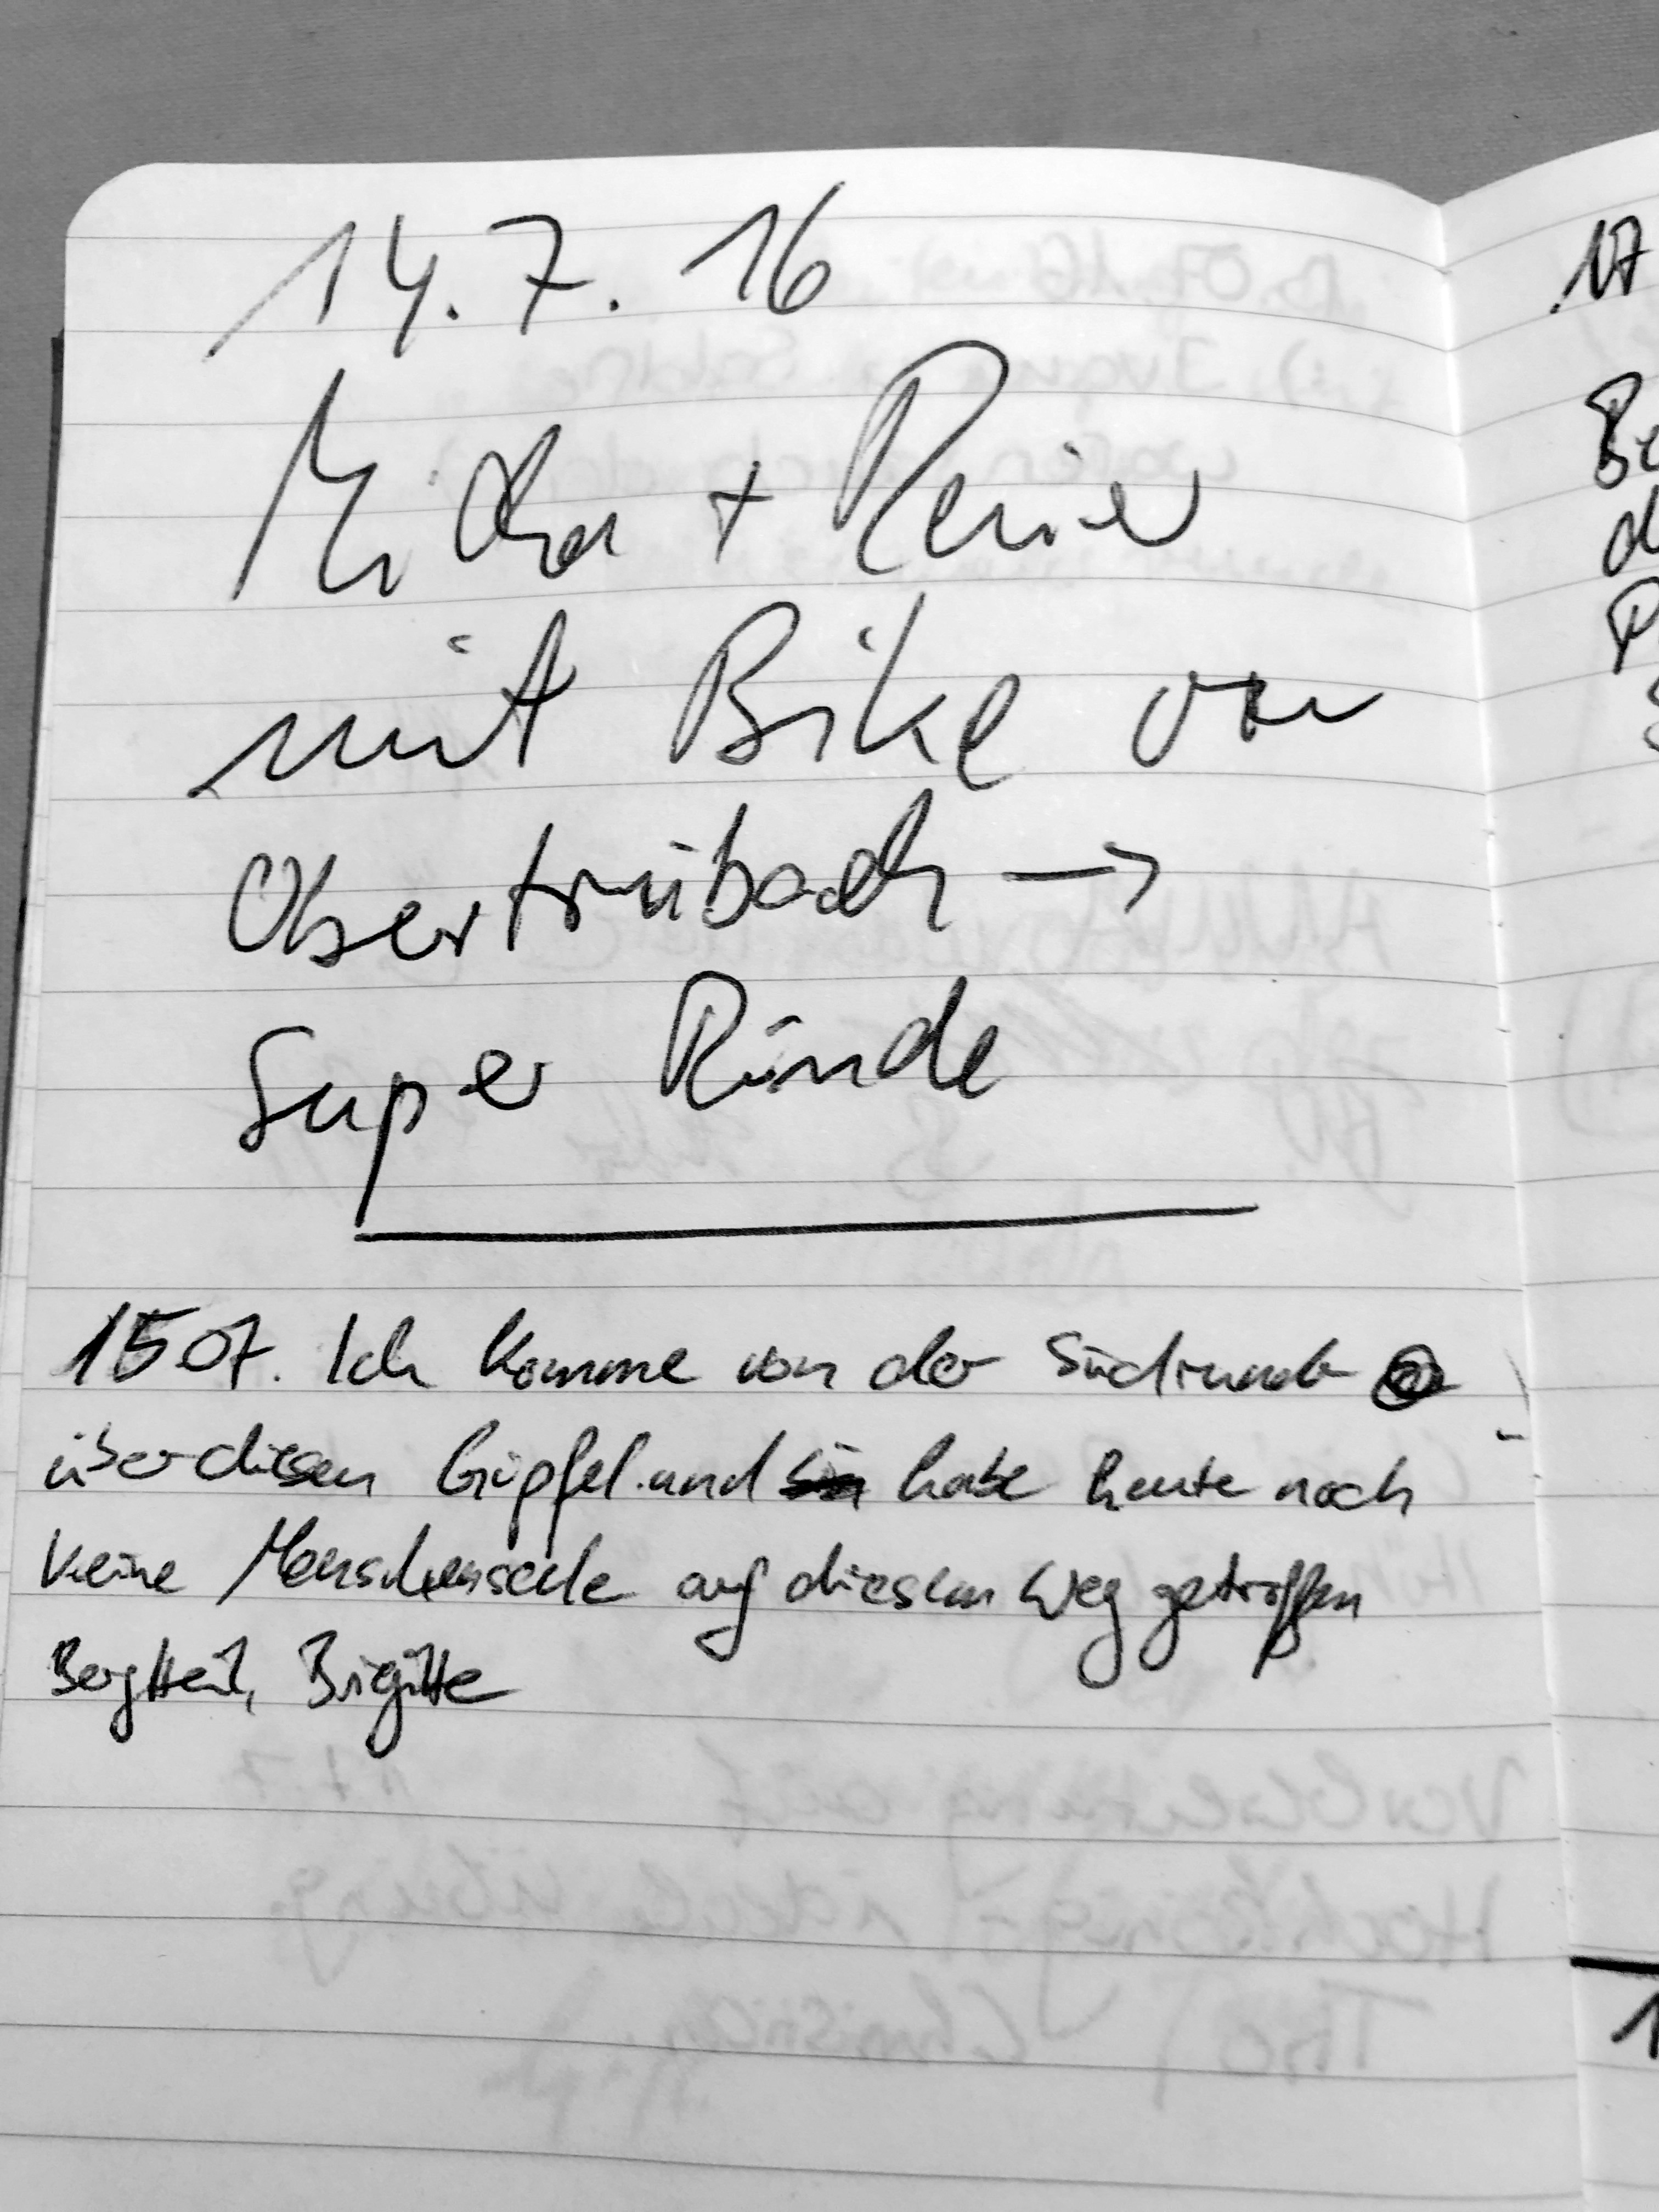 14.7.16
Micha + Reiner
mit Bike von
Obertrubach →
Super Runde
15 07. Ich komme von der Südrunde
über diesen Gipfel und habe heute noch
keine Menschenseele auf diesem Weg getroffen
Berg Heil, Brigitte
17